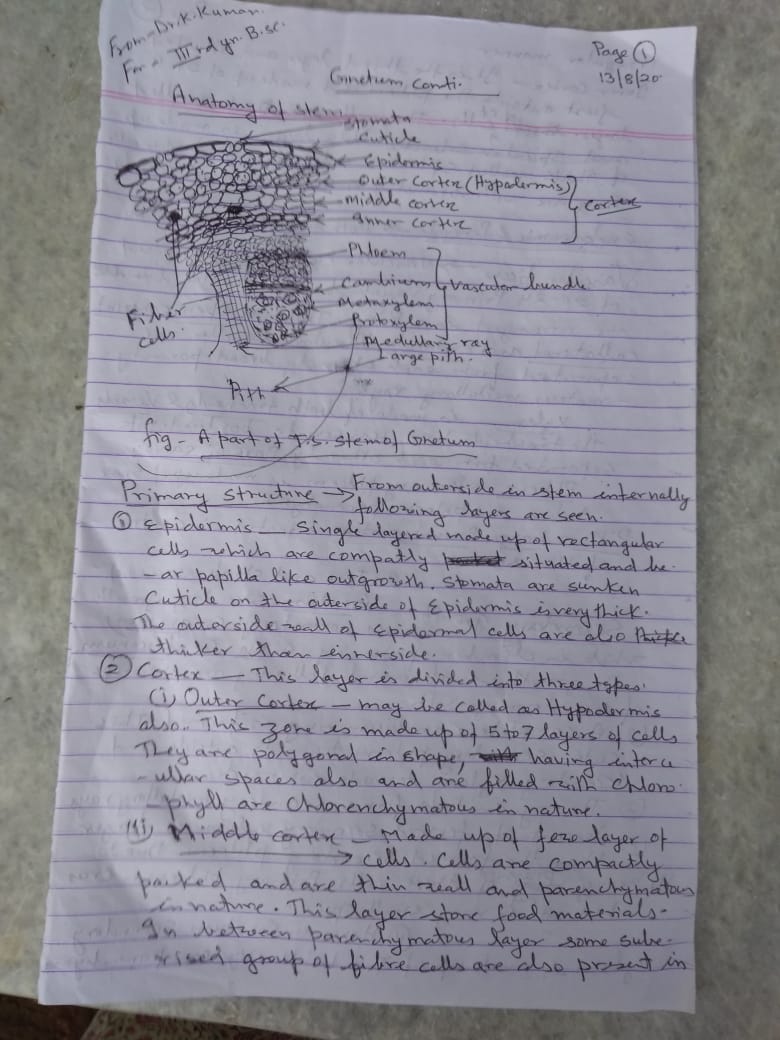 From - Dr. K. Kumar.
For - IIIrd yr. B.sc.
Page ①
13/8/20
Gnetum conti.
Anatomy of stem
stomata
cuticle
Epidermis
Outer cortex (Hypodermis)
middle cortex
Inner cortex
cortex
Phloem
Cambium
Metaxylem
Protoxylem
vascular bundle
Medullary ray
Large pith.
Fiber
cells.
Pith
fig - A part of T.s. stem of Gnetum
Primary structure → From outerside in stem internally
following layers are seen.
① Epidermis — Single layered made up of rectangular
cells which are compatly situated and be-
-ar papilla like outgrowth. Stomata are sunken
Cuticle on the outerside of Epidermis is very thick.
The outerside wall of Epidermal cells are also
thinker than innerside.
② Cortex — This layer is divided into three types.
(i) Outer Cortex — may be called as Hypodermis
also. This zone is made up of 5 to 7 layers of cells
They are polygonal in shape, having interce
-ullar spaces also and are filled with chloro-
-phyll are Chlorenchymatous in nature.
(ii) Middle cortex — Made up of few layer of
→ cells. Cells are compactly
packed and are thin wall and parenchymatous
in nature. This layer store food materials.
In between parenchymatous layer some sube-
-rised group of fibre cells are also present in